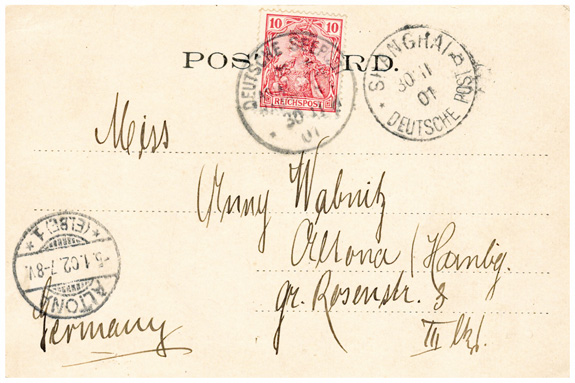 10 10
REICHSPOST
POST CARD.
DEUTSCHE SEEP
30 11
01
SHANGHAI
30 11
01
DEUTSCHE POST
Miss
Anny Wabnitz
Altona / Hambg.
gr. Rosenstr. 3
III
Germany
ALTONA
5.1.02.7-8V.
(ELBE) 1.